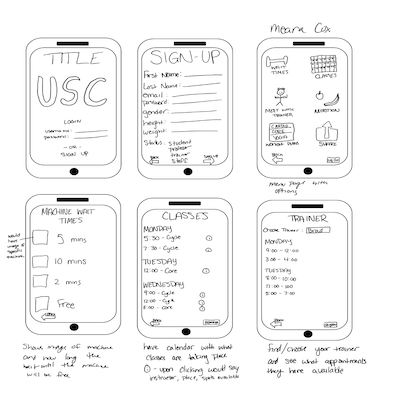 Meara Cox
TITLE
USC
LOGIN
username:
password:
- OR -
SIGN UP
SIGN-UP
First Name:
Last Name:
email:
password:
gender:
height:
weight:
Status: student
trainer
Back
WAIT
TIMES
CLASSES
MEET WITH
TRAINER
NUTRITION
CARDIO
CORE
WORKOUT PLANS
SHARE
Back
menu page with
options
MACHINE WAIT
TIMES
5 mins
10 mins
2 mins
Free
would
have
image of
specific
machine
Shows image of machine
and how long the
wait until the machine
will be free
CLASSES
MONDAY
5:30 - Cycle
7:30 - Cycle
TUESDAY
12:00 - Core
WEDNESDAY
9:00 - Cycle
12:00 - Cycle
5:00 - Core
have calendar with what
classes are taking place
upon clicking would say
instructor, place, spots available
TRAINER
Choose Trainer: Brad
MONDAY
9:00 - 12:00
3:00 - 4:00
TUESDAY
8:00 - 10:00
11:00 - 3:00
5:00 - 7:00
find/choose your trainer
and see what appointments
they have available